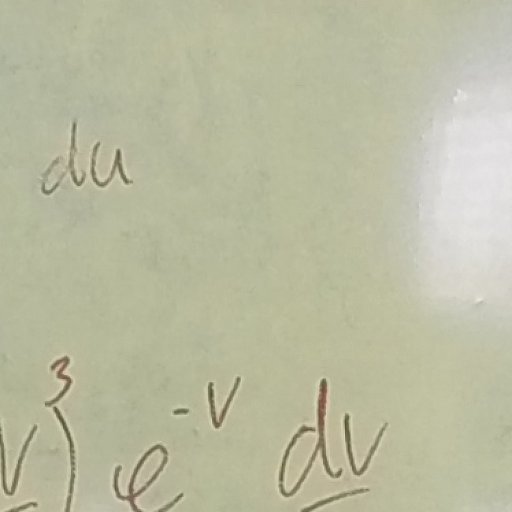 du
v)³ e^{-v} dv